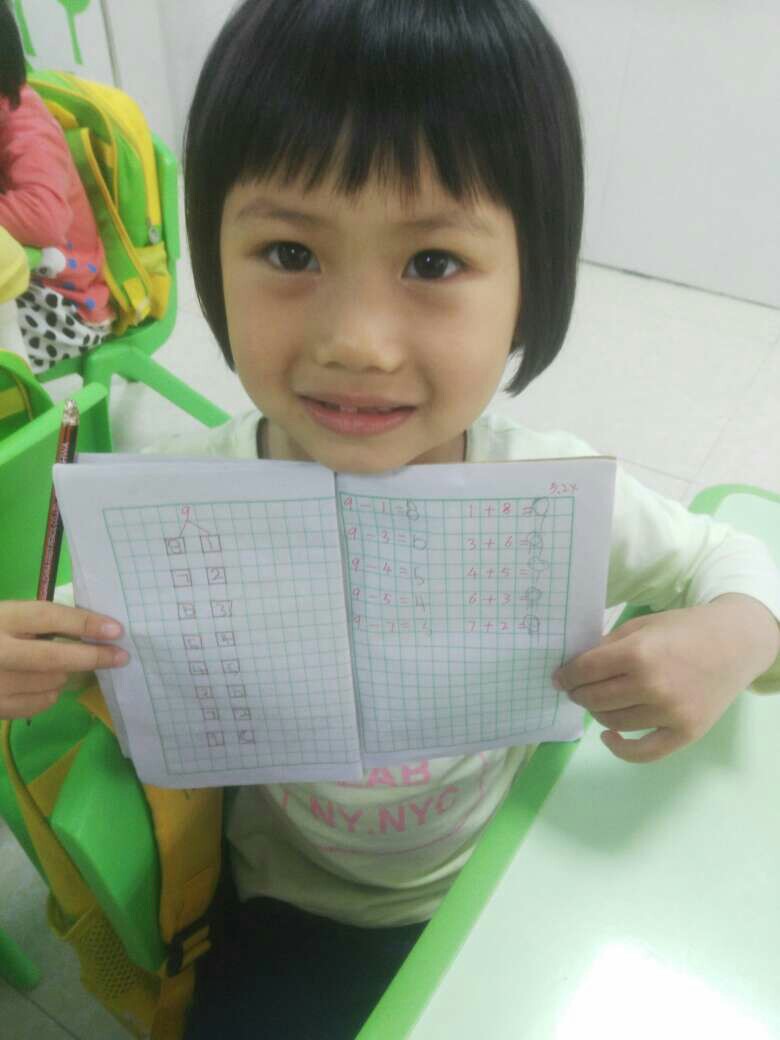 5.24
9
8 1
7 2
6 3
5 4
4 5
3 6
1
9 - 1 = 8 1 + 8 =
9 - 3 = 6 3 + 6 = 9
9 - 4 = 5 4 + 5 = 9
9 - 5 = 4 6 + 3 = 9
9 - 7 = 7 + 2 = 9
LAB
NY.NYC